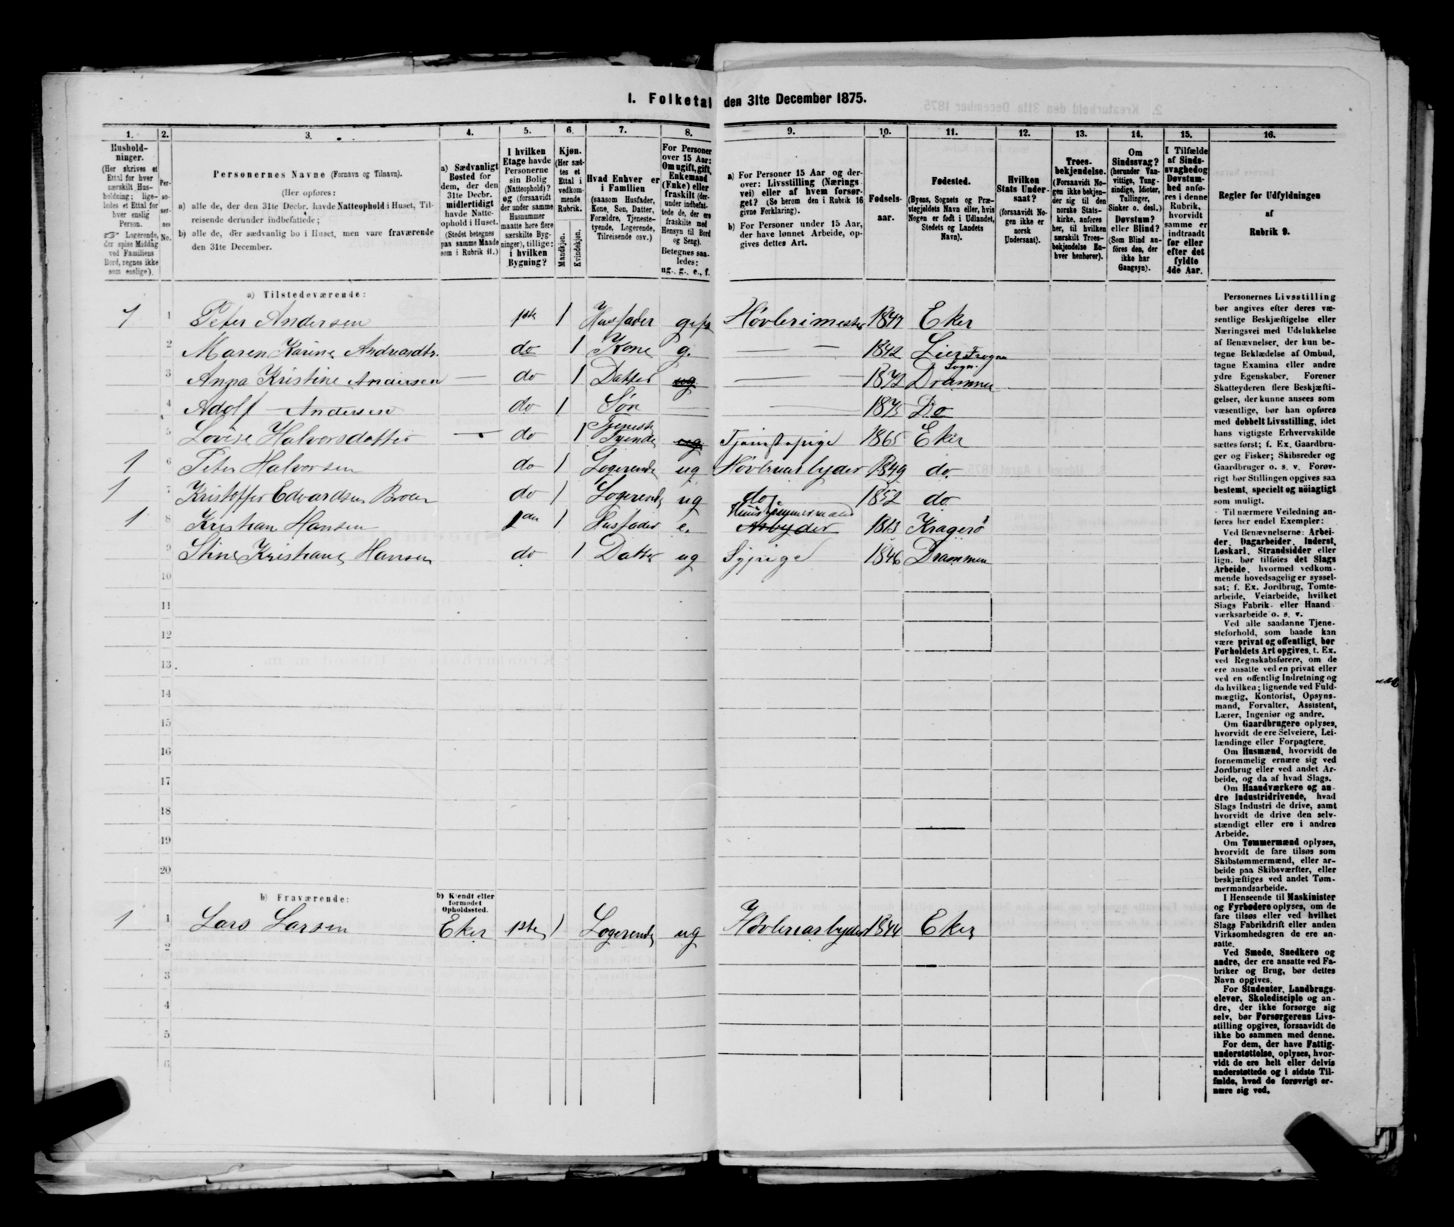 1. Folketal den 31te December 1875.
1. 2. 3. 4. 5. 6. 7. 8. 9. 10. 11. 12. 13. 14. 15. 16.
Hushold-
ninger.
(Her skrives et
Ettal for hver
særskilt Hus-
holdning; lige-
ledes et Ettal for
hver enslig
Person.
Logerende,
der spise Middag
ved Familiens
Bord, regnes ikke
som enslige).
Per-
so-
ner-
nes
No.
Personernes Navne (Fornavn og Tilnavn).
(Her opføres:
a) alle de, der den 31te Decbr. havde Natteophold i Huset, Til-
reisende derunder indbefattede;
b) alle de, der sædvanlig bo i Huset, men vare fraværende
den 31te December.
a) Sædvanligt
Bosted for
dem, der den
31te Decbr.
midlertidigt
havde Natte-
ophold i Huset.
(Stedet betegnes
paa samme Maade
som i Rubrik 11.)
I hvilken
Etage havde
Personerne
sin Bolig
(Natteophold)?
og (forsaavidt
der under samme
Husnummer
maatte høre flere
særskilte Byg-
ninger), tillige:
i hvilken
Bygning?
Kjøn.
(Her sæt-
tes et
Ettal i
vedkom-
mende
Rubrik.
Mandkjøn.
Kvindekjøn.
Hvad Enhver er
i Familien
(saasom Husfader,
Kone, Søn, Datter,
Forældre, Tjeneste-
tyende, Logerende,
Tilreisende osv.)
For Personer
over 15 Aar:
Om ugift, gift,
Enkemand
(Enke) eller
fraskilt (der-
under indbefat-
tede de, der ere
fraskilte med
Hensyn til Bord
og Seng).
Betegnes saa-
ledes:
ug., g., e., f.
a) For Personer 15 Aar og der-
over: Livsstilling (Nærings
vei) eller af hvem forsør-
get? (Se herom den i Rubrik 16
givne Forklaring).
b) For Personer under 15 Aar,
der have lønnet Arbeide, op-
gives dettes Art.
Fødsels-
aar.
Fødested.
(Byens, Sognets og Præ-
stegjeldets Navn eller, hvis
Nogen er født i Udlandet,
Stedets og Landets
Navn).
Hvilken
Stats Under-
saat?
(forsaavidt No-
gen ikke er
norsk
Undersaat).
Troes-
bekjendelse.
(Forsaavidt No-
gen ikke bekjen-
der sig til den
norske Stats-
kirke, anføres
her, til hvilken
særskilt Troes-
bekjendelse En-
hver henhører).
Om
Sindssvag?
(herunder Van-
vittige, Tung-
sindige, Idioter,
Tullinger,
Sinker o. desl.)
Døvstum?
eller Blind?
(Som Blind an-
føres den, der
ikke har
Gangsyn).
I Tilfælde
af Sinds-
svaghed og
Døvstum-
hed anfø-
res i denne
Rubrik,
hvorvidt
samme er
indtraadt
før eller
efter det
fyldte
4de Aar.
Regler for Udfyldningen
af
Rubrik 9.
a) Tilstedeværende:
1 1 Peter Andersen 1ste 1 Husfader gift Høvlerimester 1847 Eker
2 Maren Karine Andvardtr. do 1 Kone g. 1842 Lier Frogne Sogn.
3 Anna Kristine Andersen do 1 Datter ug 1872 Drammen
4 Adolf Andersen do 1 Søn 1875 Do
5 Lovise Halvorsdatter do 1 Tjeneste Tyende ug Tjenestepige 1865 Eker
1 6 Peter Halvorsen do 1 Logerende ug Høvlerarbyder 1849 do.
1 7 Kristoffer Edvardsen Broen do 1 Logerende ug do 1852 do
1 8 Kristian Hansen 2den 1 Husfader e. Huustømmermand Arbyder 1813 Kragerø
9 Stine Kristiane Hansen do 1 Datter ug Sypige 1846 Drammen
10
11
12
13
14
15
16
17
18
19
20
b) Fraværende:
b) Kjendt eller
formodet
Opholdssted.
1 1 Lars Larsen Eker 1ste 1 Logerende ug Høvlerarbyder 1844 Eker
2
3
4
5
6
Personernes Livsstilling
bør angives efter deres væ-
sentlige Beskjæftigelse eller
Næringsvei med Udelukkelse
af Benævnelser, der kun be-
tegne Beklædelse af Ombud,
tagne Examina eller andre
ydre Egenskaber. Forener
Skatteyderen flere Beskjæfti-
gelser, der kunne ansees som
væsentlige, bør han opføres
med dobbelt Livsstilling, idet
hans vigtigste Erhvervskilde
sættes først; f. Ex. Gaardbru-
ger og Fisker; Skibsreder og
Gaardbruger o. s. v. Forøv-
rigt bør Stillingen opgives saa
bestemt, specielt og nøiagtigt
som muligt.
Til nærmere Veiledning an-
føres her endel Exempler:
Ved Benævnelserne: Arbei-
der, Dagarbeider, Inderst,
Løskarl, Strandsidder eller
lign. bør tilføies det Slags
Arbeide, hvormed vedkom-
mende hovedsagelig er syssel-
sat; f. Ex. Jordbrug, Tomte-
arbeide, Veiarbeide, hvilket
Slags Fabrik- eller Haand-
værksarbeide o. s. v.
Ved alle saadanne Tjene-
steforhold, som baade kan
være privat og offentligt, bør
Forholdets Art opgives, t. Ex.
ved Regnskabsførere, om de
ere ansatte ved en privat eller
ved en offentlig Indretning og
da hvilken; lignende ved Fuld-
mægtig, Kontorist, Opsyns-
mand, Forvalter, Assistent,
Lærer, Ingeniør og andre.
Om Gaardbrugere oplyses,
hvorvidt de ere Selveiere, Lei-
lændinge eller Forpagtere.
Om Husmænd, hvorvidt de
fornemmelig ernære sig ved
Jordbrug eller ved andet Ar-
beide, og da af hvad Slags.
Om Haandværkere og an-
dre Industridrivende, hvad
Slags Industri de drive, samt
hvorvidt de drive den selv-
stændigt eller ere i andres
Arbeide.
Om Tømmermænd oplyses,
hvorvidt de fare tilsøs som
Skibstømmermænd, eller ar-
beide paa Skibsværfter, eller
beskjæftiges ved andet Tøm-
mermandsarbeide.
I Henseende til Maskinister
og Fyrbødere oplyses, om de
fare tilsøs eller ved hvilket
Slags Fabrikdrift eller anden
Virksomhedsgren de ere an-
satte.
Ved Smede, Snedkere og
andre, der ere ansatte ved Fa-
briker og Brug, bør dettes
Navn opgives.
For Studenter, Landbrugs-
elever, Skoledisciple og an-
dre, der ikke forsørge sig
selv, bør Forsørgerens Livs-
stilling opgives, forsaavidt de
ikke bo sammen med denne.
For dem, der have Fattig-
understøttelse, oplyses, hvor-
vidt de ere helt eller delvis
understøttede og i sidste Til-
fælde, hvad de forøvrigt er-
nære sig ved.